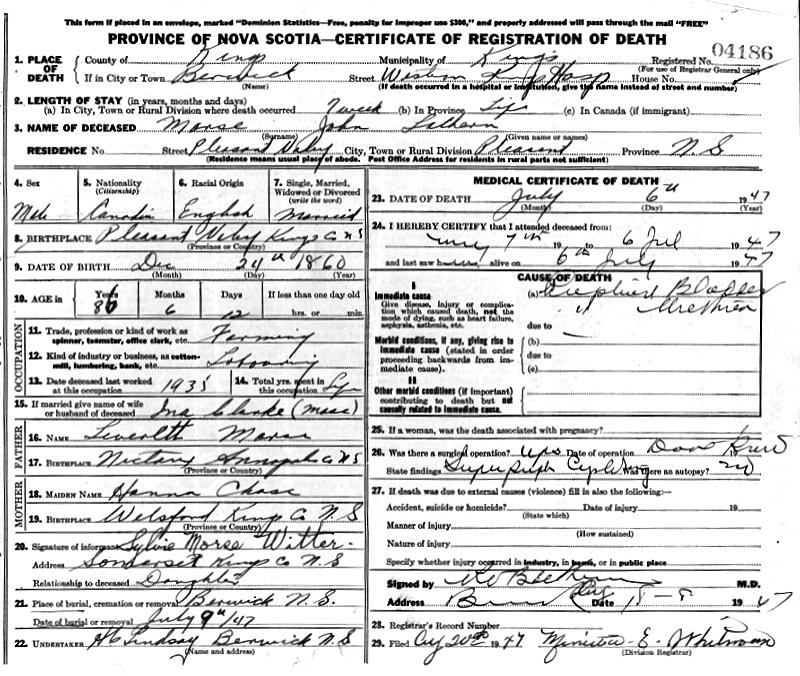 This form if placed in an envelope, marked "Dominion Statistics—Free, penalty for improper use $300," and properly addressed will pass through the mail "FREE"
PROVINCE OF NOVA SCOTIA—CERTIFICATE OF REGISTRATION OF DEATH
04186
1. PLACE OF DEATH County of Kings Municipality of Kings Registered No.
(For use of Registrar General only)
If in City or Town Berwick Street Western Kings Hosp House No.
(Name) (If death occurred in a hospital or institution, give the name instead of street and number)
2. LENGTH OF STAY (in years, months and days)
(a) In City, Town or Rural Division where death occurred week (b) In Province Life (c) In Canada (if immigrant)
3. NAME OF DECEASED Morse John
(Surname) (Given name or names)
RESIDENCE No Street Pleasant Valley City, Town or Rural Division Pleasant Province N.S
(Residence means usual place of abode. Post Office Address for residents in rural parts not sufficient)
4. Sex Male
5. Nationality (Citizenship) Canadian
6. Racial Origin English
7. Single, Married, Widowed or Divorced (write the word) Married
8. BIRTHPLACE Pleasant Valley Kings Co N S
(Province or Country)
9. DATE OF BIRTH Dec 24th 1860
(Month) (Day) (Year)
10. AGE in Years 86 Months 6 Days 12 If less than one day old
hrs. or min.
OCCUPATION
11. Trade, profession or kind of work as spinner, teamster, office clerk, etc. Farming
12. Kind of industry or business, as cotton-mill, lumbering, bank, etc.
13. Date deceased last worked at this occupation 1935
14. Total yrs. spent in this occupation Life
15. If married give name of wife or husband of deceased Ina Clarke (Morse)
FATHER
16. NAME Leverett Morse
17. BIRTHPLACE Nictaux Annapolis Co N S
(Province or Country)
MOTHER
18. MAIDEN NAME Hanna Chase
19. BIRTHPLACE Welsford Kings Co N.S
(Province or Country)
20. Signature of informant Sylvie Morse Witter
Address Somerset Kings Co N.S
Relationship to deceased Daughter
21. Place of burial, cremation or removal Berwick N.S.
Date of burial or removal July 9th/47
22. UNDERTAKER H C Lindsay Berwick N S
(Name and address)
MEDICAL CERTIFICATE OF DEATH
23. DATE OF DEATH July 6th 1947
(Month) (Day) (Year)
24. I HEREBY CERTIFY that I attended deceased from:
7th 19 to 6 Jul 1947
and last saw him alive on 6th July 1947
CAUSE OF DEATH
I
Immediate cause
Give disease, injury or complication which caused death, not the mode of dying, such as heart failure, asphyxia, asthenia, etc.
(a)
due to
Morbid conditions, if any, giving rise to immediate cause (stated in order proceeding backwards from immediate cause).
(b)
due to
(c)
II
Other morbid conditions (if important) contributing to death but not causally related to immediate cause.
25. If a woman, was the death associated with pregnancy?
26. Was there a surgical operation? yes Date of operation
State findings Was there an autopsy? no
27. If death was due to external causes (violence) fill in also the following:—
Accident, suicide or homicide? Date of injury 19
(State which)
Manner of injury
(How sustained)
Nature of injury
Specify whether injury occurred in industry, in home, or in public place
Signed by M.D.
Address Date 1947
28. Registrar's Record Number
29. Filed 20th 1947 E.
(Division Registrar)